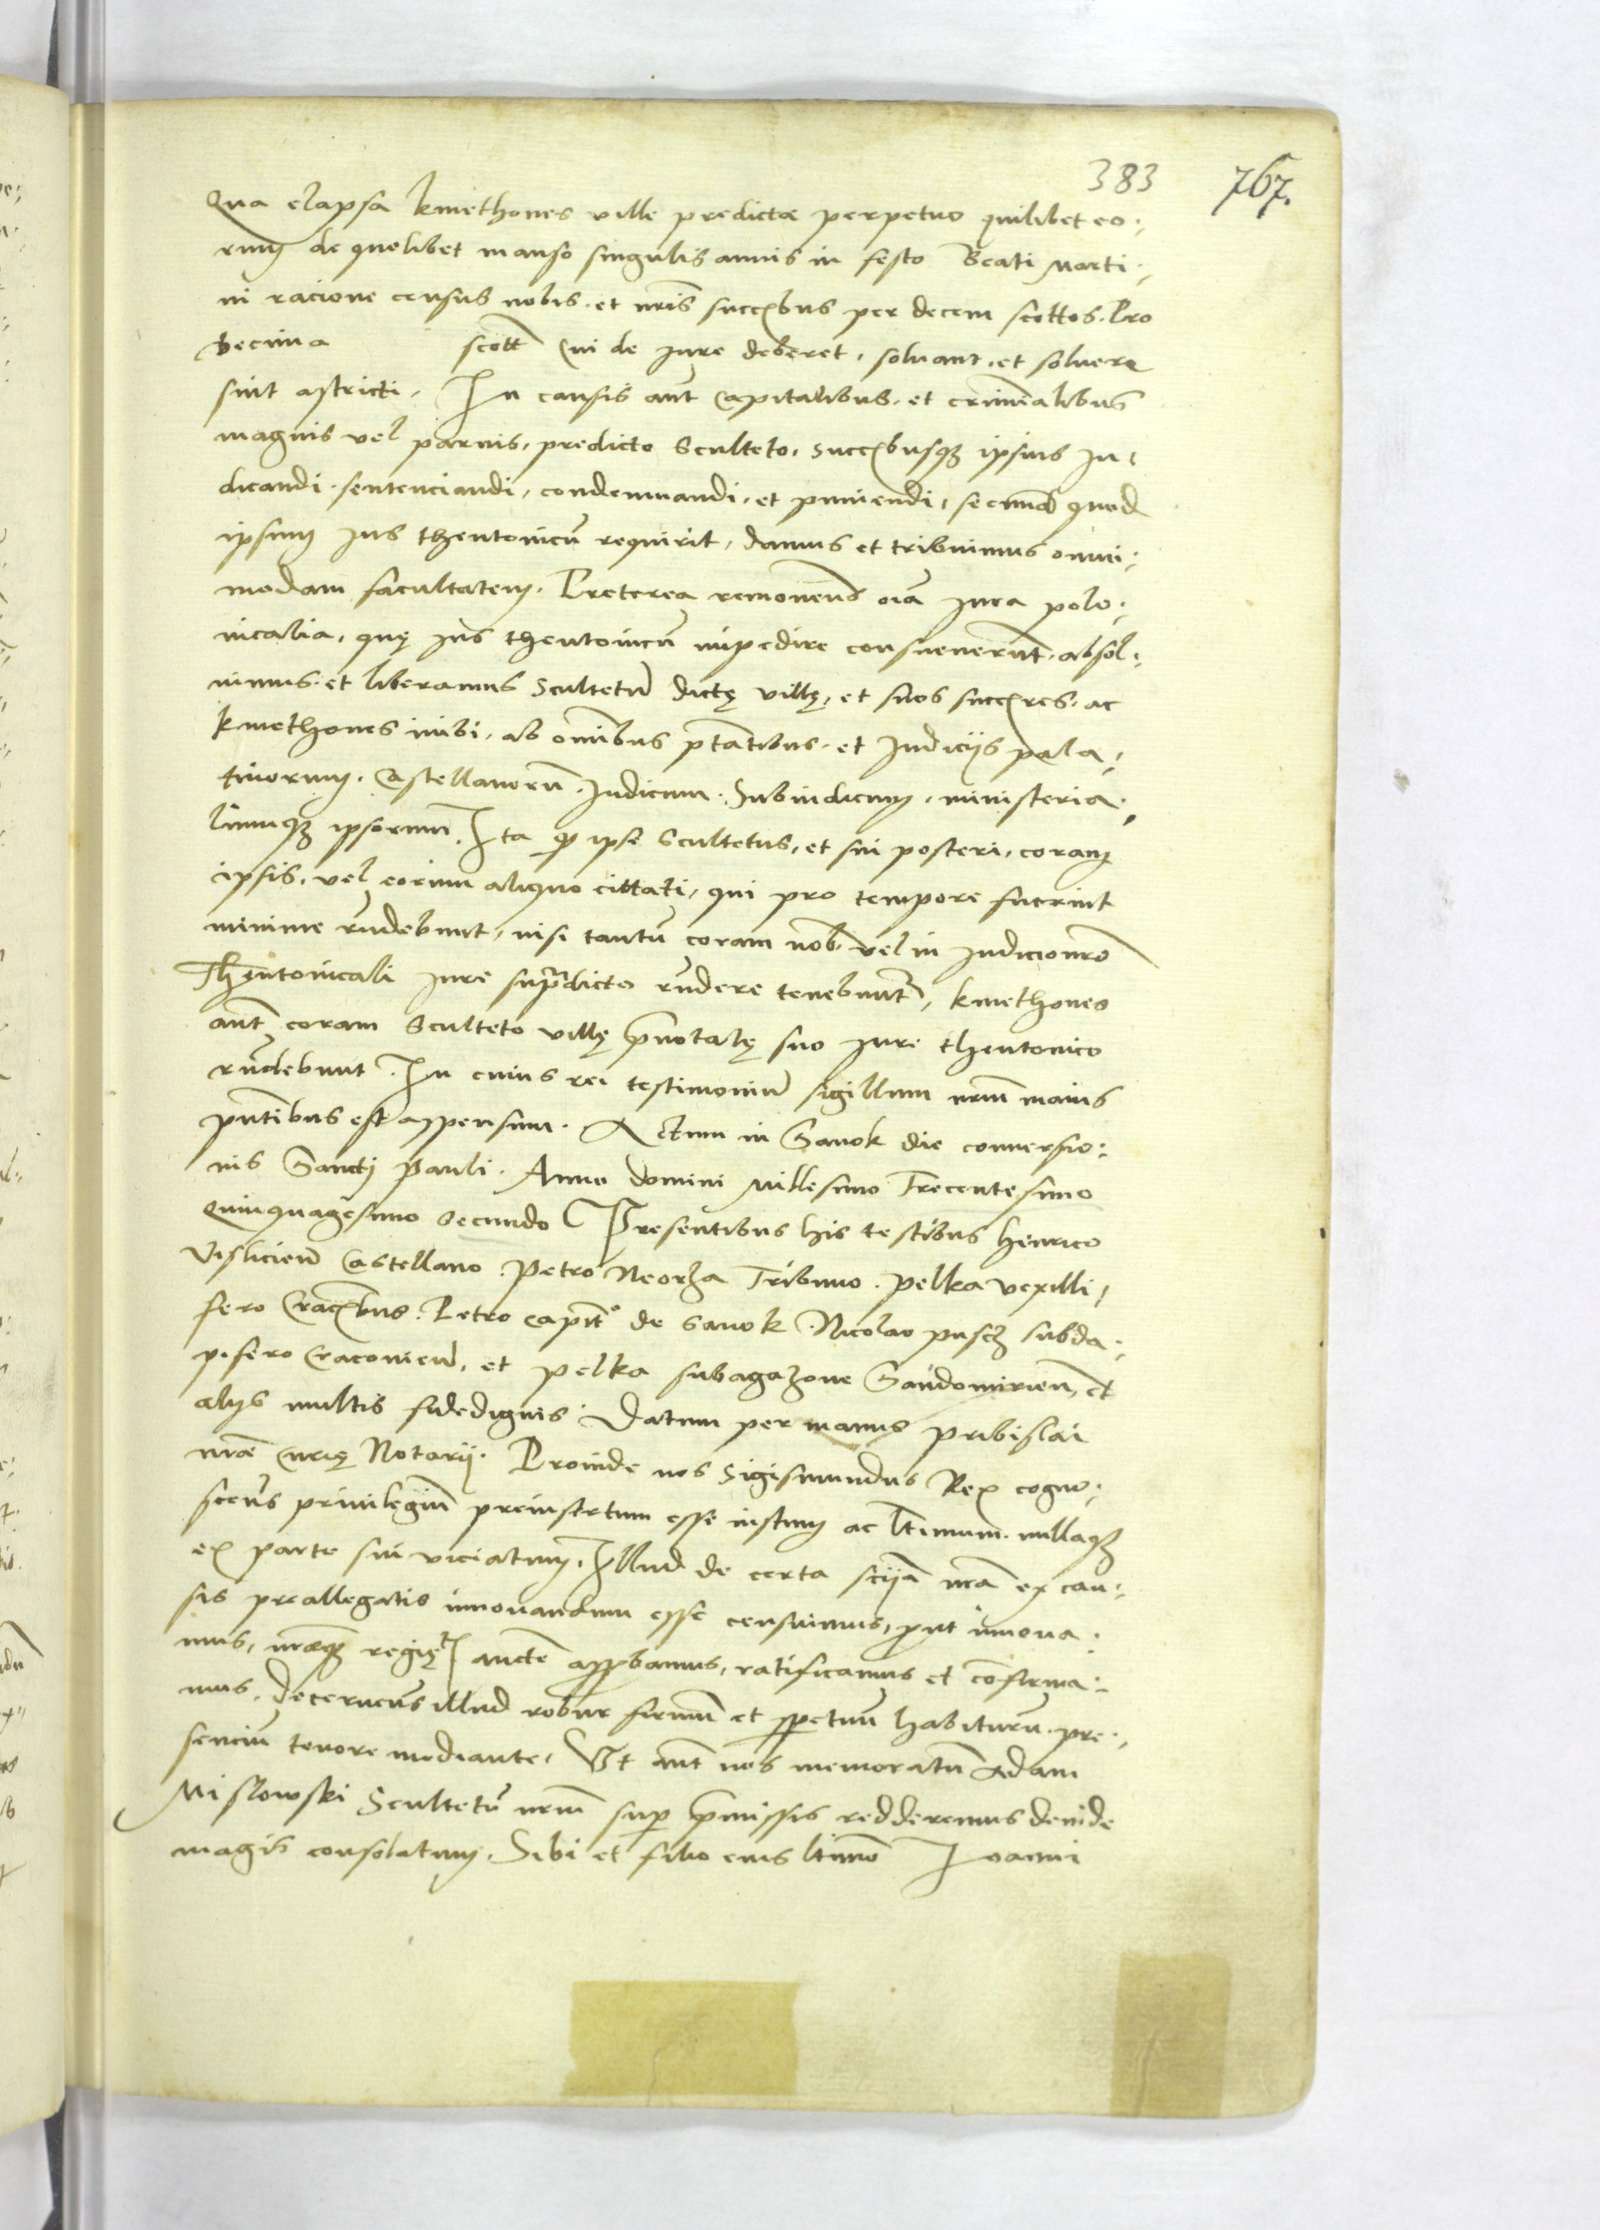 383 767.
Qua elapsa kmethones ville predictæ perpetuo quilibet eo:
rum de quolibet manso singulis annis in festo Beati Marti:
ni racione census nobis et nris succrbus per decem scottos. Pro
decima scott cui de Jure deberet, soluant, et soluere
sint astricti. In causis aut Capitalibus et criminalibus
magnis vel paruis, predicto Sculteto, Succrbusq ipsius Ju:
dicandi, sentenciandi, condemnandi, et puniendi, secundum quod
ipsum Jus theutonicum requirit, damus et tribuimus omni:
modam facultatem. Preterea remouens oia Jura polo:
nicalia, quę Jus theutonicum impedire consueuerunt, absol:
uimus et liberamus Scultetum dictę villę, et suos succres ac
kmethones inibi, ab omnibus ptatibus et Judicijs pala:
tinorum, Castellanorum, Judicum, Subiudicum, ministeria:
liumq ipsorum. Ita q ipse Scultetus, et sui posteri, coram
ipsis, vel eorum aliquo cittati, qui pro tempore fuerint
minime rndebunt, nisi tantum coram nob vel in Judicio nro
Theutonicali Jure supradicto rndere tenebuntur, kmethones
aut coram Sculteto villę pnotatę suo Jure theutonico
rndebunt. In cuius rei testimonium sigillum nrum maius
pntibus est appensum. Actum in Sanok die conuersio:
nis Sancti Pauli. Anno domini Millesimo Trecentesimo
Quinquagesimo Secundo Presentibus his testibus Henrico
Visliciens Castellano. Petro Neorza Tribuno. Pelka vexilli:
fero Craccrbus. Petro capit° de Sanok. Nicolao pusch subda:
pifero Cracouiens, et Pelka subagazone Sandomiriens, et
alijs multis fidedignis. Datum per manus Pribislai
nræ Curię Notarij. Proinde nos Sigismundus Rex cogno:
scens priuilegium preinsertum esse iustum ac ltimum nullaq
ex parte sui viciatum. Illud de certa scija nra ex cau:
sis preallegatis innouandum esse censuimus, put innoua:
mus, nraq regię auctte appbamus, ratificamus et confirma:
mus, Decernens illud robur firmum et ppetuum habiturum pre:
sencium tenore mediante. Ut aut nos memoratum Adam
Mislowski Scultetum nrum sup pmissis redderemus deinde
magis consolatum. Sibi et filio eius ltimo Joanni